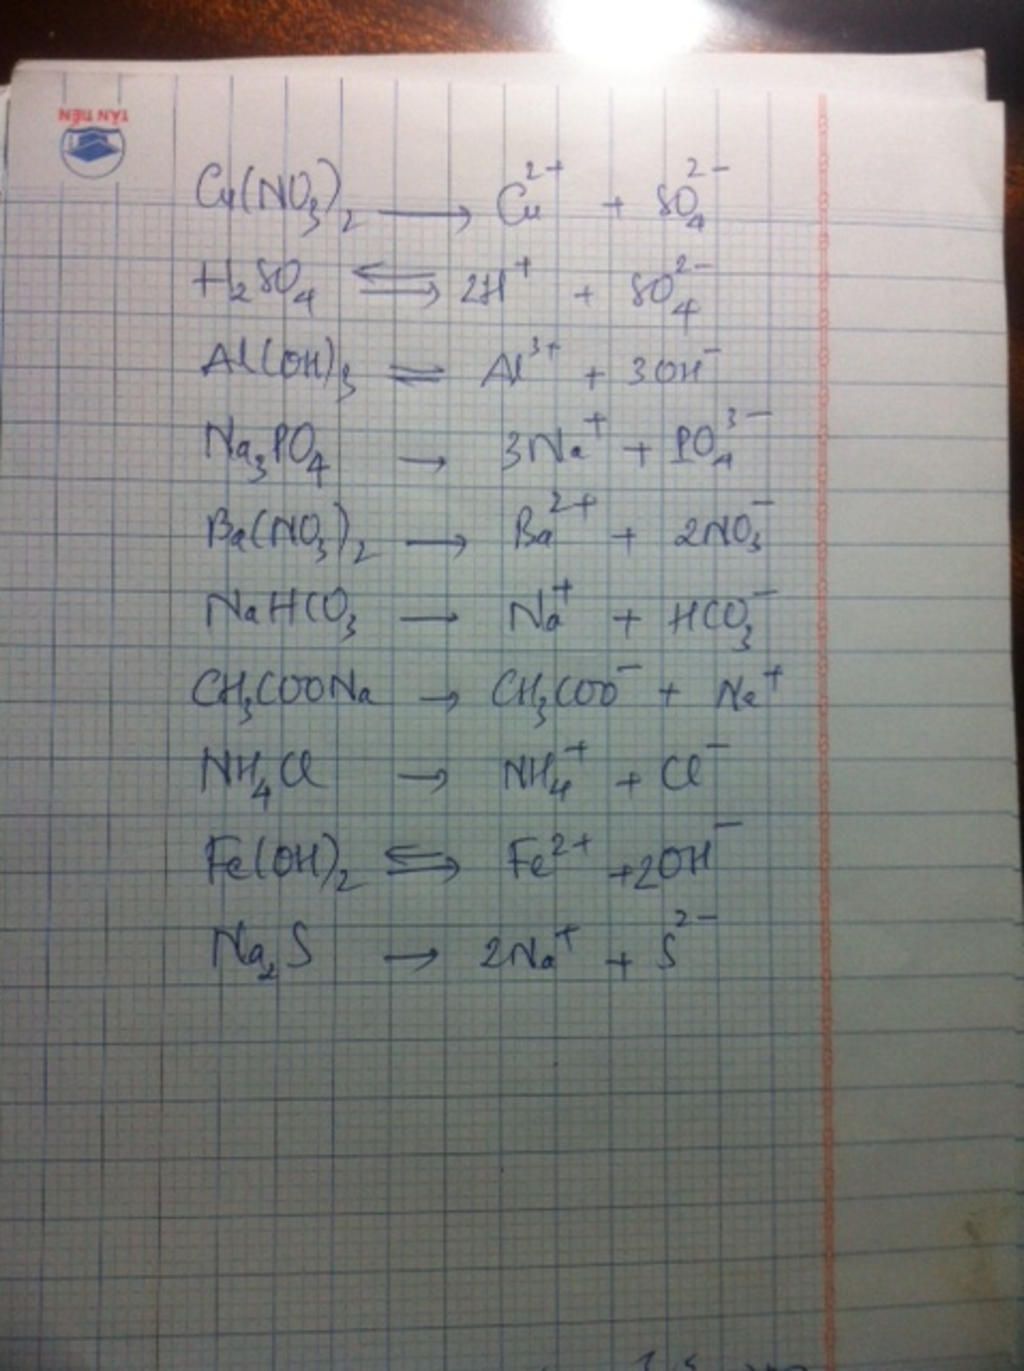 TÂN TIẾN
Cu(NO₃)₂ → Cu²⁺ + SO₄²⁻
H₂SO₄ ⇌ 2H⁺ + SO₄²⁻
Al(OH)₃ ⇌ Al³⁺ + 3OH⁻
Na₃PO₄ → 3Na⁺ + PO₄³⁻
Ba(NO₃)₂ → Ba²⁺ + 2NO₃⁻
NaHCO₃ → Na⁺ + HCO₃⁻
CH₃COONa → CH₃COO⁻ + Na⁺
NH₄Cl → NH₄⁺ + Cl⁻
Fe(OH)₂ ⇌ Fe²⁺ + 2OH⁻
Na₂S → 2Na⁺ + S²⁻